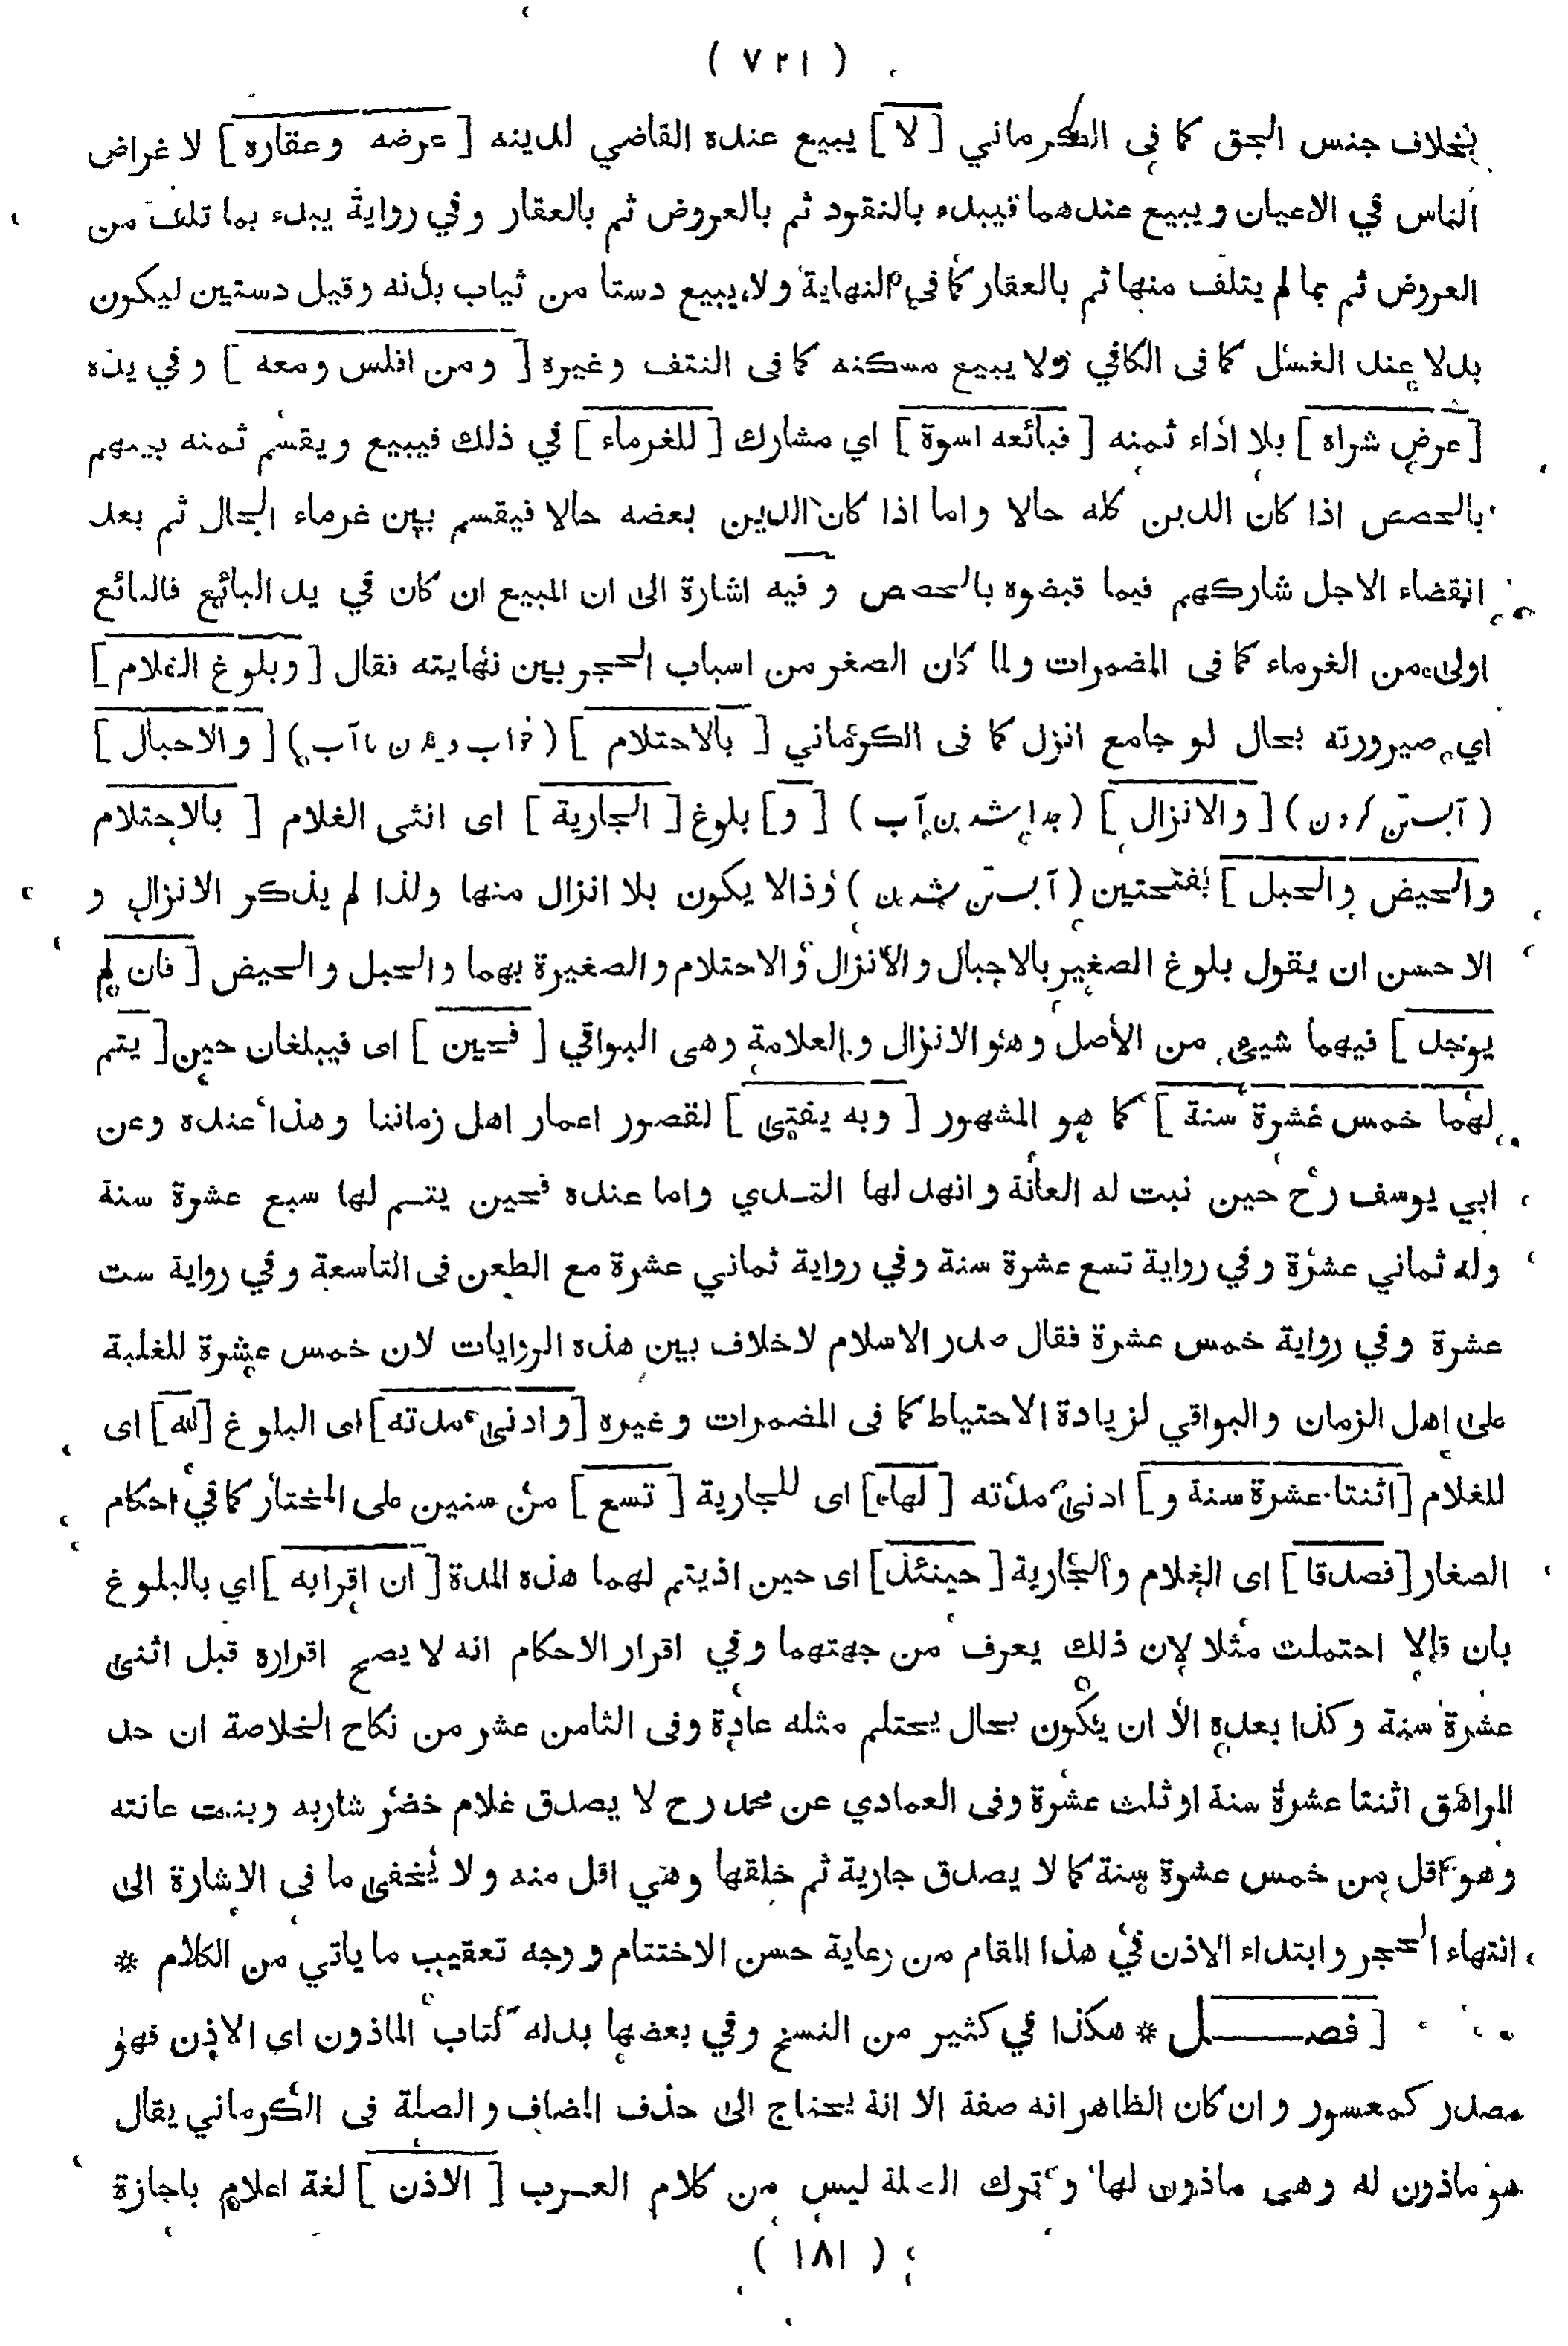 ( ٧٢١ )
بخلاف جنس الحق كما فى الكرماني [ لا ] يبيع عنده القاضي لدينه [ عرضه وعقاره ] لاغراض
الناس في الاعيان ويبيع عندهما فيبدء بالنقود ثم بالعروض ثم بالعقار وفي رواية يبدء بما تلف من
العروض ثم بما لم يتلف منها ثم بالعقار كما فى النهاية ولا يبيع دستا من ثياب بدنه وقيل دستين ليكون
بدلا عند الغسل كما فى الكافي ولا يبيع مسكنه كما فى النتف وغيره [ ومن افلس ومعه ] وفي يده
[ عرض شراه ] بلا اداء ثمنه [ فبائعه اسوة ] اي مشارك [ للغرماء ] في ذلك فيبيع ويقسم ثمنه بينهم
بالحصص اذا كان الدين كله حالا واما اذا كان الدين بعضه حالا فيقسم بين غرماء الحال ثم بعد
انقضاء الاجل شاركهم فيما قبضوه بالحصص وفيه اشارة الى ان المبيع ان كان في يد البائع فالبائع
اولى من الغرماء كما فى المضمرات ولما كان الصغر من اسباب الحجر بين نهايته فقال [ وبلوغ الغلام ]
اي صيرورته بحال لو جامع انزل كما فى الكرماني [ بالاحتلام ] ( خواب ديدن با آب ) [ والاحبال ]
( آبستن كردن ) [ والانزال ] ( جدا شدن آب ) [ و ] بلوغ [ الجارية ] اى انثى الغلام [ بالاحتلام
والحيض والحبل ] بفتحتين ( آبستن شدن ) وذالا يكون بلا انزال منها ولذا لم يذكر الانزال و
الاحسن ان يقول بلوغ الصغير بالاحبال والانزال والاحتلام والصغيرة بهما والحبل والحيض [ فان لم
يوجد ] فيهما شيىء من الأصل وهو الانزال والعلامة وهى البواقي [ فحين ] اى فيبلغان حين [ يتم
لهما خمس عشرة سنة ] كما هو المشهور [ وبه يفتى ] لقصور اعمار اهل زماننا وهذا عنده وعن
ابي يوسف رح حين نبت له العانة وانهد لها الثدي واما عنده فحين يتم لها سبع عشرة سنة
وله ثماني عشرة وفي رواية تسع عشرة سنة وفي رواية ثماني عشرة مع الطعن فى التاسعة وفي رواية ست
عشرة وفي رواية خمس عشرة فقال صدر الاسلام لاخلاف بين هذه الروايات لان خمس عشرة للغلبة
على اهل الزمان والبواقي لزيادة الاحتياط كما فى المضمرات وغيره [ وادنى مدته ] اى البلوغ [ له ] اى
للغلام [ اثنتا عشرة سنة و ] ادنى مدته [ لها ] اى للجارية [ تسع ] من سنين على المختار كما في احكام
الصغار [ فصدقا ] اى الغلام والجارية [ حينئذ ] اى حين اذيتم لهما هذه المدة [ ان اقرابه ] اي بالبلوغ
بان قالا احتملت مثلا لان ذلك يعرف من جهتهما وفي اقرار الاحكام انه لا يصح اقراره قبل اثنى
عشرة سنة وكذا بعده الا ان يكون بحال يحتلم مثله عادة وفى الثامن عشر من نكاح الخلاصة ان حد
المراهق اثنتا عشرة سنة او ثلث عشرة وفى العمادي عن محمد رح لا يصدق غلام خضر شاربه وبنت عانته
وهو اقل من خمس عشرة سنة كما لا يصدق جارية ثم خلقها وهي اقل منه ولا يخفى ما فى الاشارة الى
انتهاء الحجر وابتداء الاذن في هذا المقام من رعاية حسن الاختتام ووجه تعقيب ما ياتي من الكلام *
[ فصل * هكذا في كثير من النسخ وفي بعضها بدله كتاب الماذون اى الاذن فهو
مصدر كمعسور وان كان الظاهر انه صفة الا انة يحتاج الى حذف المضاف والصلة فى الكرماني يقال
هو ماذون له وهى ماذون لها وترك الصلة ليس من كلام العرب [ الاذن ] لغة اعلام باجازة
( ١٨١ )